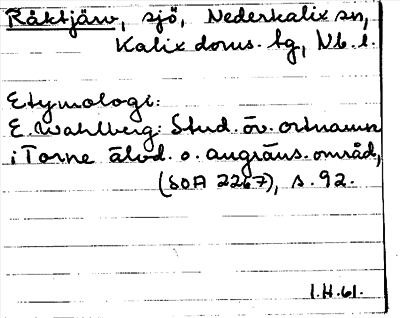 Råktjärv, sjö, Nederkalix sn,
Kalix doms. tg, Nb. l.
Etymologi:
E. Wahlberg: Stud. öv. ortnamn
i Torne älvd. o. angräns. områd,
(SOA 2267), s. 92.
1.H.61.